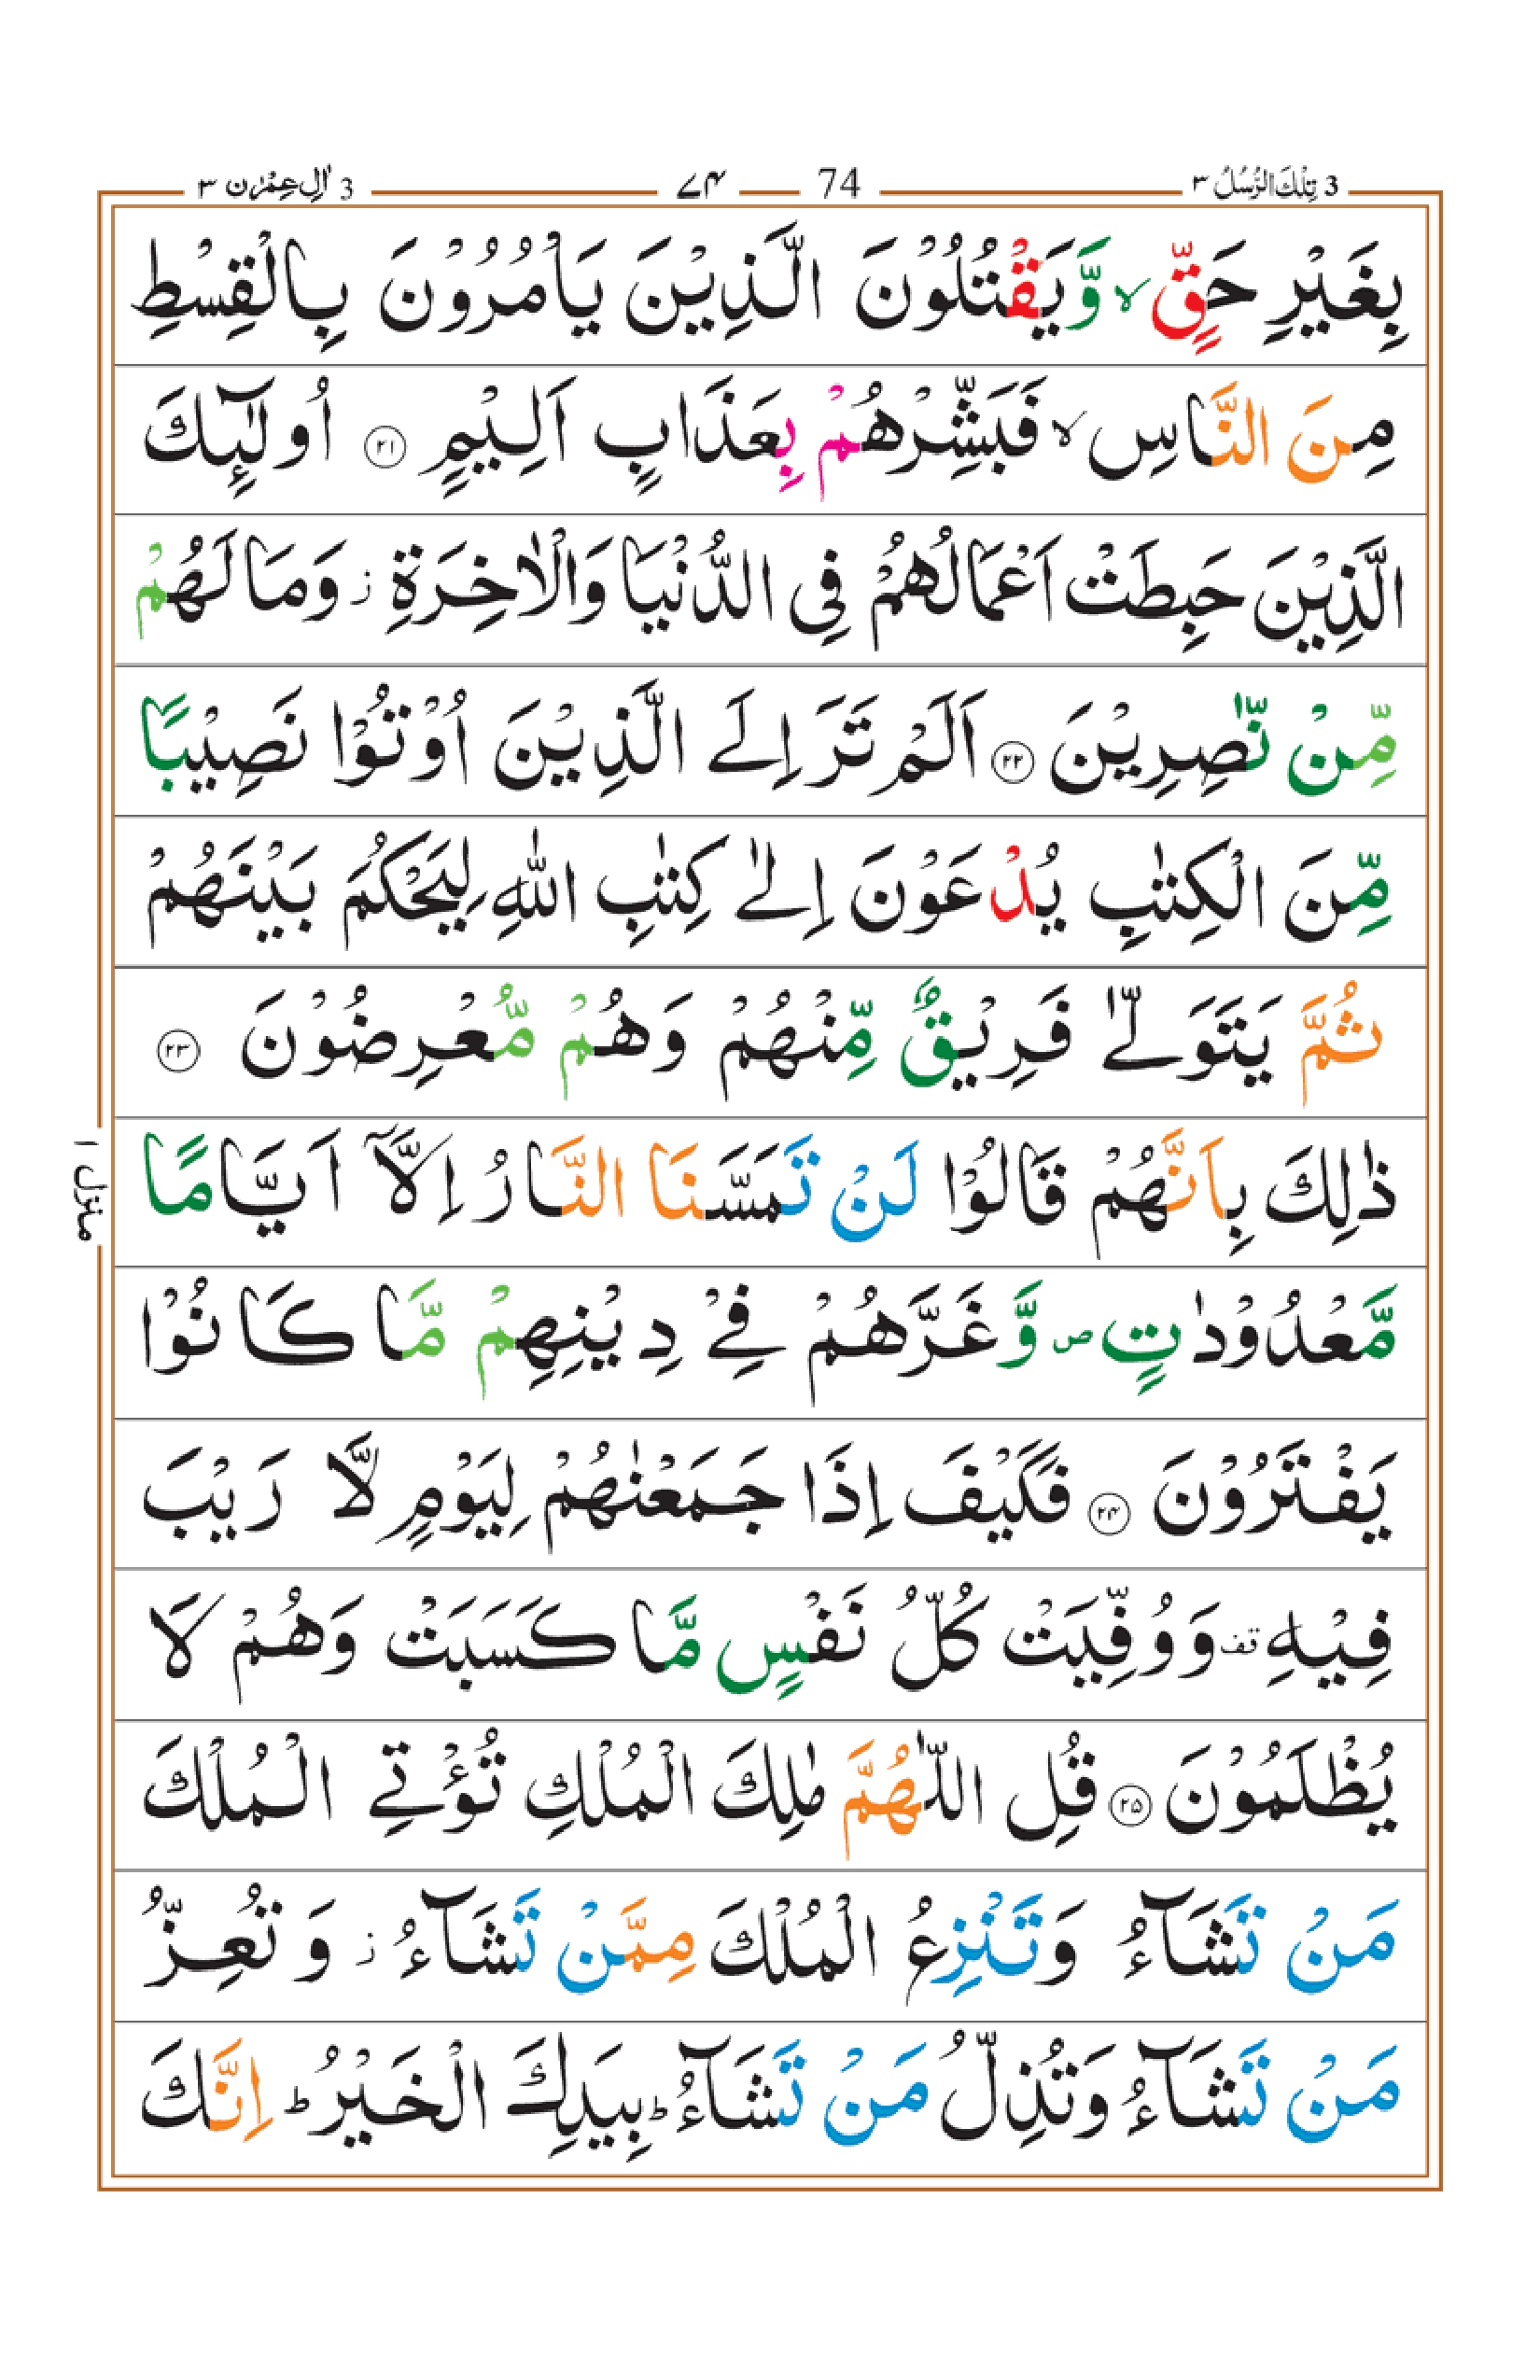 3 تِلْكَ الرُّسُلُ ٣ 74 ٧٤ 3 اٰلِ عِمْرٰن ٣
بِغَيْرِ حَقٍّ ۙ وَّيَقْتُلُوْنَ الَّذِيْنَ يَاْمُرُوْنَ بِالْقِسْطِ
مِنَ النَّاسِ ۙ فَبَشِّرْهُمْ بِعَذَابٍ اَلِيْمٍ ﴿۲۱﴾ اُولٰٓئِكَ
الَّذِيْنَ حَبِطَتْ اَعْمَالُهُمْ فِى الدُّنْيَا وَالْاٰخِرَةِ ز وَمَا لَهُمْ
مِّنْ نّٰصِرِيْنَ ﴿۲۲﴾ اَلَمْ تَرَ اِلَى الَّذِيْنَ اُوْتُوْا نَصِيْبًا
مِّنَ الْكِتٰبِ يُدْعَوْنَ اِلٰى كِتٰبِ اللّٰهِ لِيَحْكُمَ بَيْنَهُمْ
ثُمَّ يَتَوَلّٰى فَرِيْقٌ مِّنْهُمْ وَهُمْ مُّعْرِضُوْنَ ﴿۲۳﴾
ذٰلِكَ بِاَنَّهُمْ قَالُوْا لَنْ تَمَسَّنَا النَّارُ اِلَّاۤ اَيَّامًا
مَّعْدُوْدٰتٍ ص وَّغَرَّهُمْ فِىْ دِيْنِهِمْ مَّا كَانُوْا
يَفْتَرُوْنَ ﴿۲۴﴾ فَكَيْفَ اِذَا جَمَعْنٰهُمْ لِيَوْمٍ لَّا رَيْبَ
فِيْهِ قف وَوُفِّيَتْ كُلُّ نَفْسٍ مَّا كَسَبَتْ وَهُمْ لَا
يُظْلَمُوْنَ ﴿۲۵﴾ قُلِ اللّٰهُمَّ مٰلِكَ الْمُلْكِ تُؤْتِى الْمُلْكَ
مَنْ تَشَآءُ وَتَنْزِعُ الْمُلْكَ مِمَّنْ تَشَآءُ ز وَتُعِزُّ
مَنْ تَشَآءُ وَتُذِلُّ مَنْ تَشَآءُ ؕ بِيَدِكَ الْخَيْرُ ؕ اِنَّكَ
منزل ١